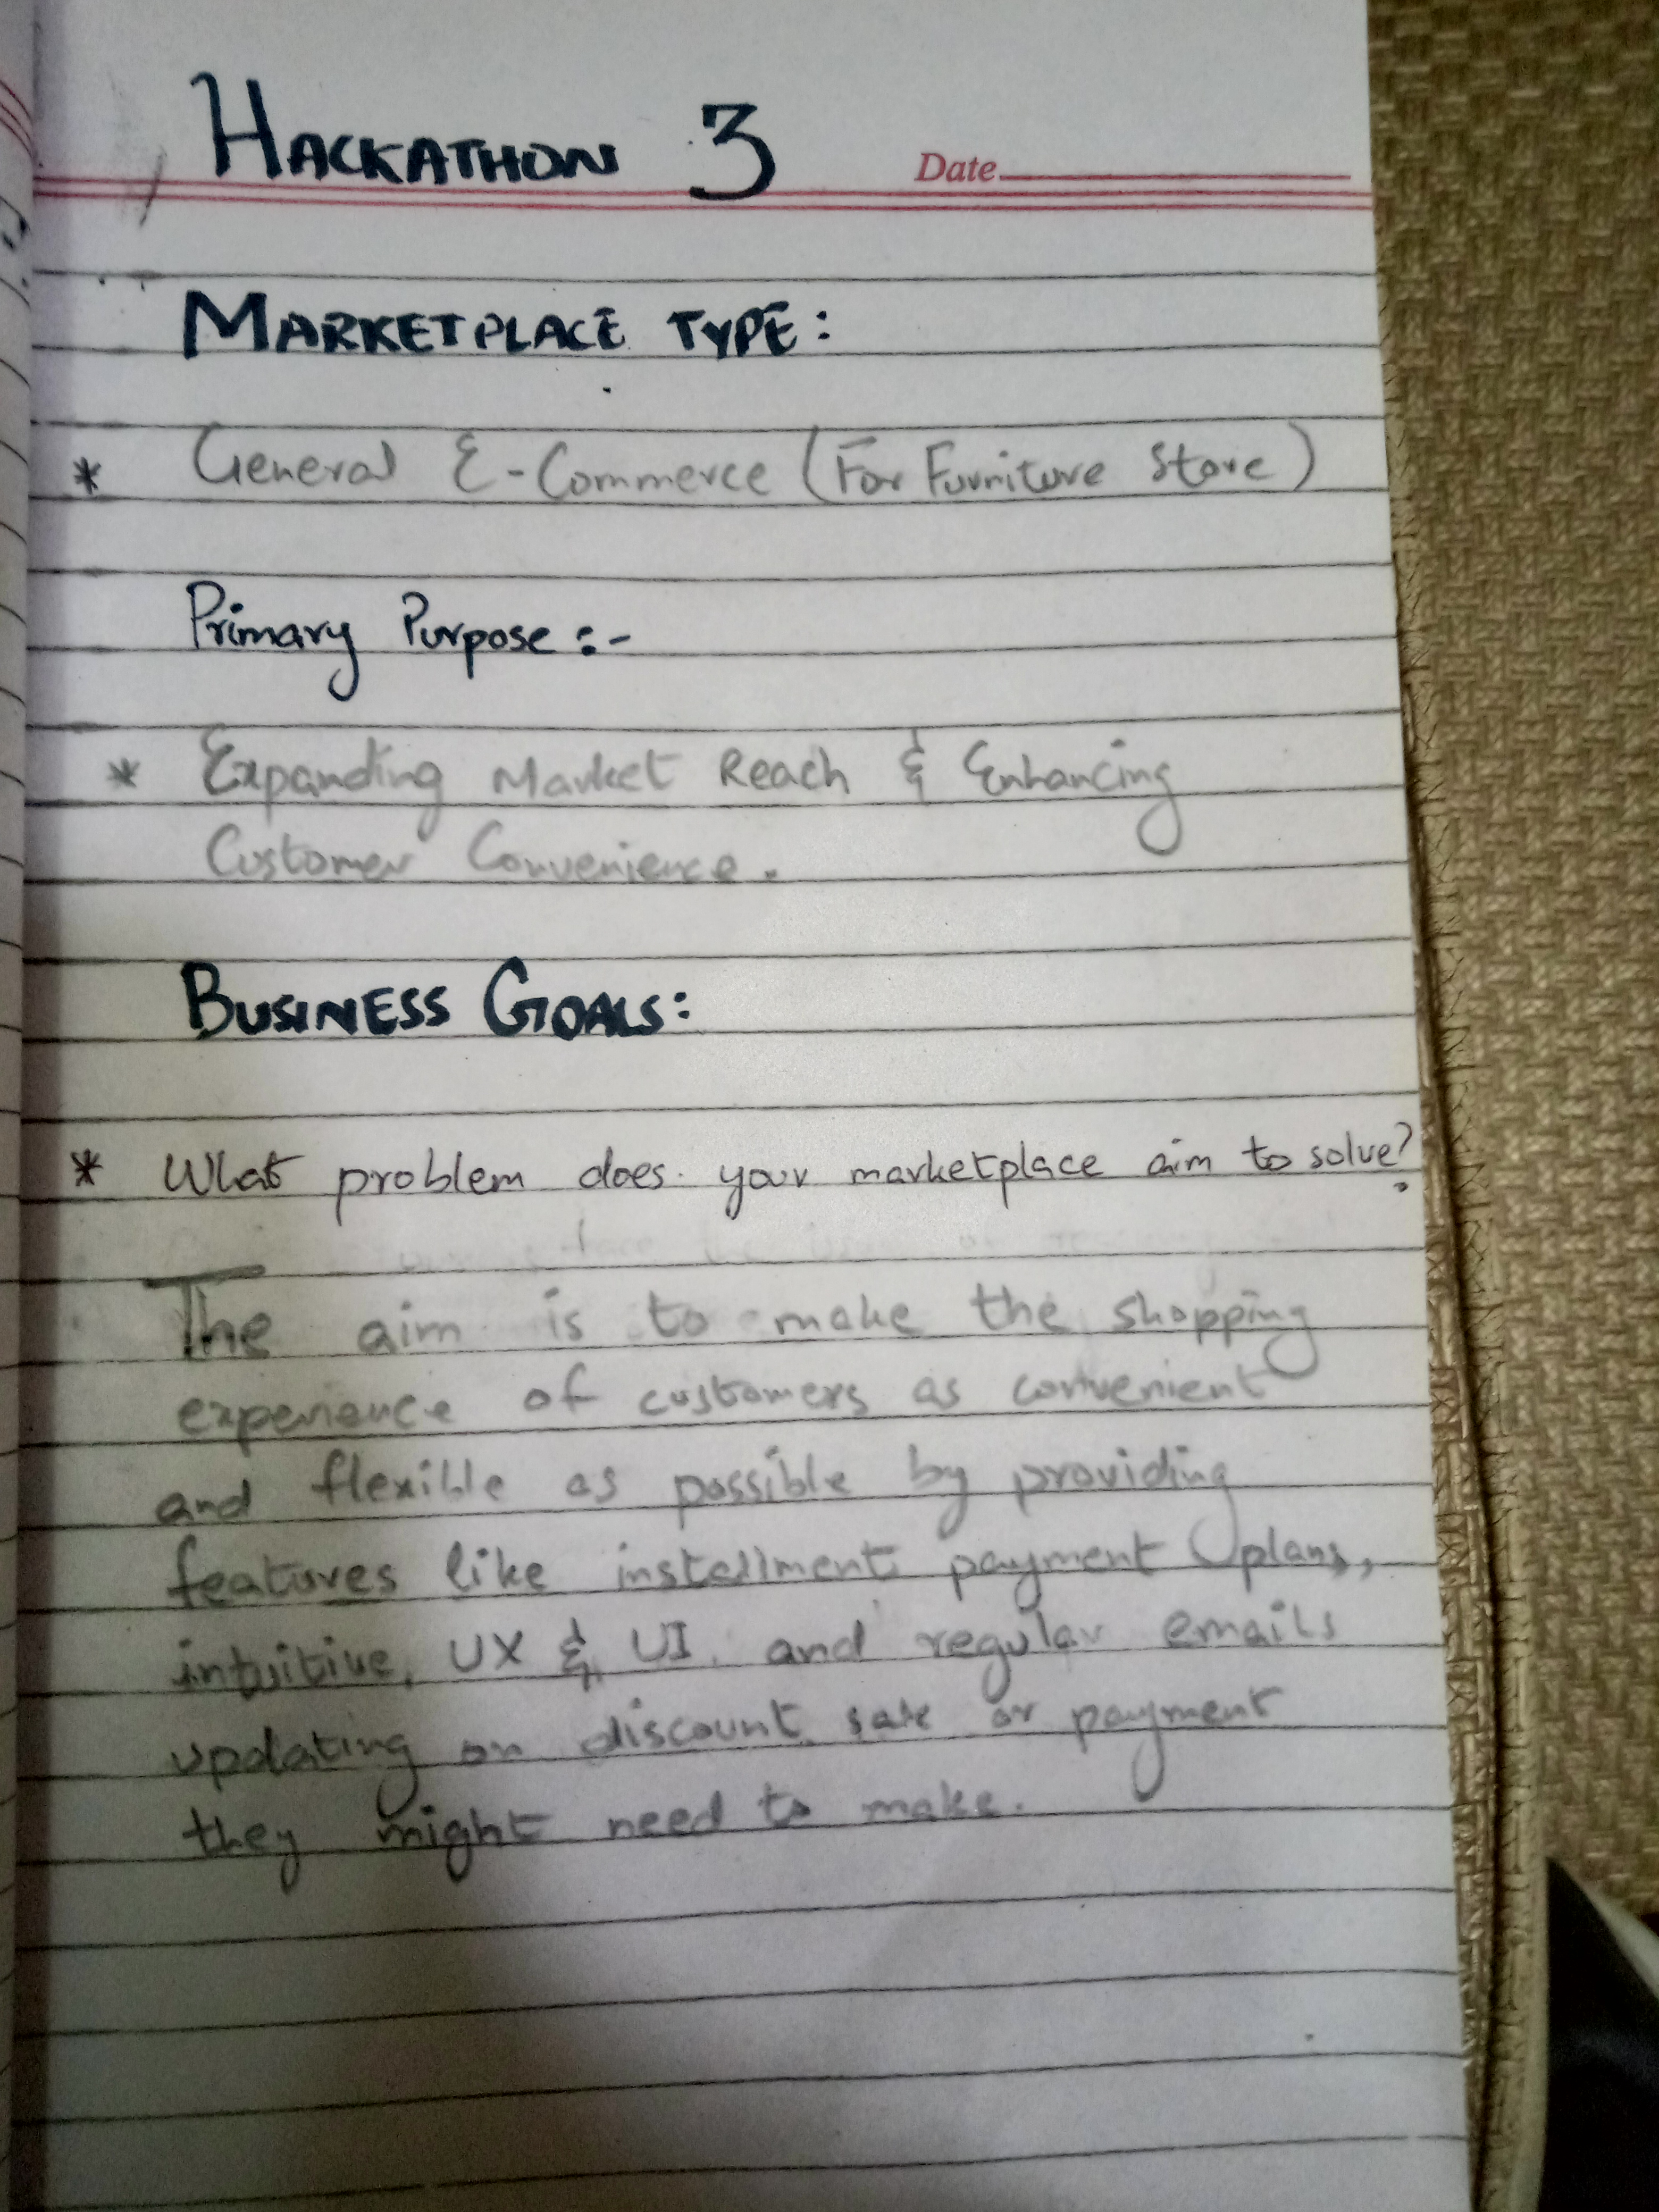 HACKATHON 3
Date
MARKETPLACE TYPE:
* General E-Commerce (For Furniture Store)
Primary Purpose :-
* Expanding Market Reach & Enhancing
Customer Convenience.
BUSINESS GOALS:
* What problem does your marketplace aim to solve?
The aim is to make the shopping
experience of customers as convenient
and flexible as possible by providing
features like installment payment plans,
intuitive, UX & UI, and regular emails
updating on discount, sale or payment
they might need to make.